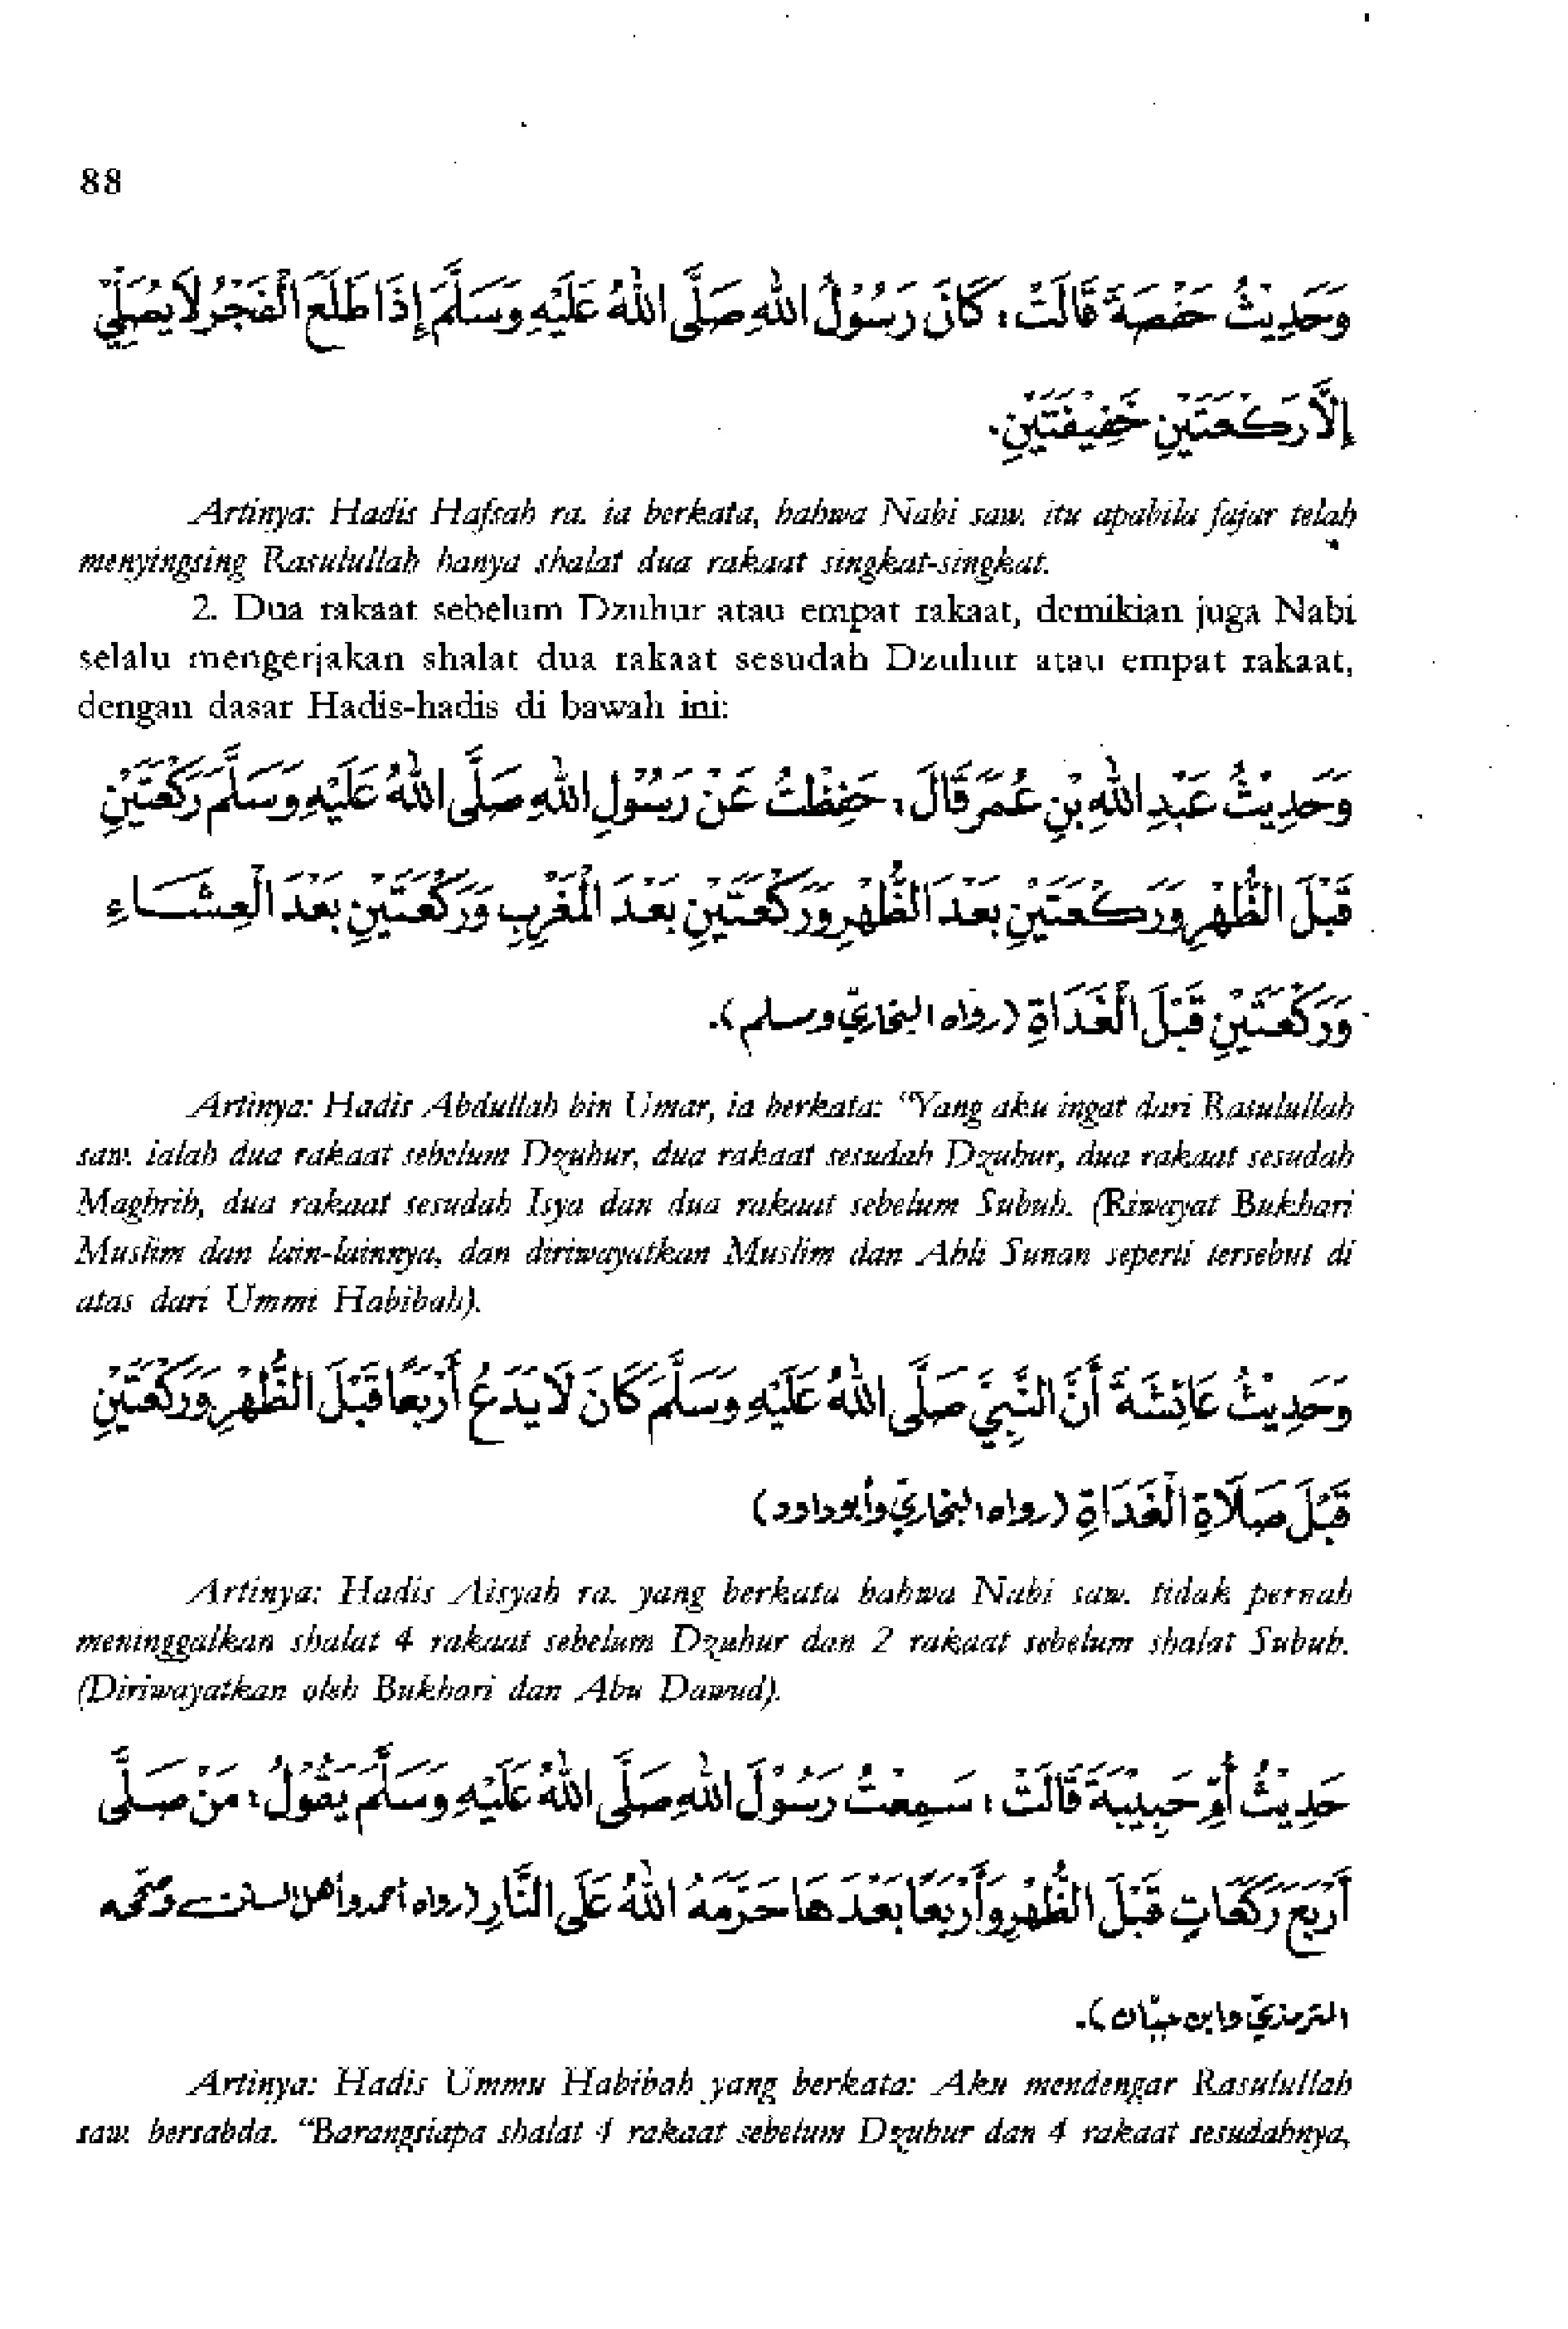 88
وَحَدِيْثُ حَفْصَةَ قَالَتْ: كَانَ رَسُوْلُ اللهِ صَلَّى اللهُ عَلَيْهِ وَسَلَّمَ إِذَا طَلَعَ الْفَجْرُ لَا يُصَلِّيْ
إِلَّا رَكْعَتَيْنِ خَفِيْفَتَيْنِ.
Artinya: Hadis Hafsah ra. ia berkata, bahwa Nabi saw. itu apabila fajar telah
menyingsing Rasulullah hanya shalat dua rakaat singkat-singkat.
2. Dua rakaat sebelum Dzuhur atau empat rakaat, demikian juga Nabi
selalu mengerjakan shalat dua rakaat sesudah Dzuhur atau empat rakaat,
dengan dasar Hadis-hadis di bawah ini:
وَحَدِيْثُ عَبْدِ اللهِ بْنِ عُمَرَ قَالَ: حَفِظْتُ عَنْ رَسُوْلِ اللهِ صَلَّى اللهُ عَلَيْهِ وَسَلَّمَ رَكْعَتَيْنِ
قَبْلَ الظُّهْرِ وَرَكْعَتَيْنِ بَعْدَ الظُّهْرِ وَرَكْعَتَيْنِ بَعْدَ الْمَغْرِبِ وَرَكْعَتَيْنِ بَعْدَ الْعِشَاءِ
وَرَكْعَتَيْنِ قَبْلَ الْغَدَاةِ (رواه البخاريّ ومسلم).
Artinya: Hadis Abdullah bin Umar, ia berkata: "Yang aku ingat dari Rasulullah
saw. ialah dua rakaat sebelum Dzuhur, dua rakaat sesudah Dzuhur, dua rakaat sesudah
Maghrib, dua rakaat sesudah Isya dan dua rakaat sebelum Subuh. (Riwayat Bukhari
Muslim dan lain-lainnya, dan diriwayatkan Muslim dan Ahli Sunan seperti tersebut di
atas dari Ummi Habibah).
وَحَدِيْثُ عَائِشَةَ أَنَّ النَّبِيَّ صَلَّى اللهُ عَلَيْهِ وَسَلَّمَ كَانَ لَا يَدَعُ أَرْبَعًا قَبْلَ الظُّهْرِ وَرَكْعَتَيْنِ
قَبْلَ صَلَاةِ الْغَدَاةِ (رواه البخاريّ وأبو داود)
Artinya: Hadis Aisyah ra. yang berkata bahwa Nabi saw. tidak pernah
meninggalkan shalat 4 rakaat sebelum Dzuhur dan 2 rakaat sebelum shalat Subuh.
(Diriwayatkan oleh Bukhari dan Abu Dawud).
حَدِيْثُ أُمِّ حَبِيْبَةَ قَالَتْ: سَمِعْتُ رَسُوْلَ اللهِ صَلَّى اللهُ عَلَيْهِ وَسَلَّمَ يَقُوْلُ: مَنْ صَلَّى
أَرْبَعَ رَكَعَاتٍ قَبْلَ الظُّهْرِ وَأَرْبَعًا بَعْدَهَا حَرَّمَهُ اللهُ عَلَى النَّارِ (رواه أحمد وأهل السنن وصحّحه
الترمذيّ وابن حبّان).
Artinya: Hadis Ummu Habibah yang berkata: Aku mendengar Rasulullah
saw. bersabda. "Barangsiapa shalat 4 rakaat sebelum Dzuhur dan 4 rakaat sesudahnya,